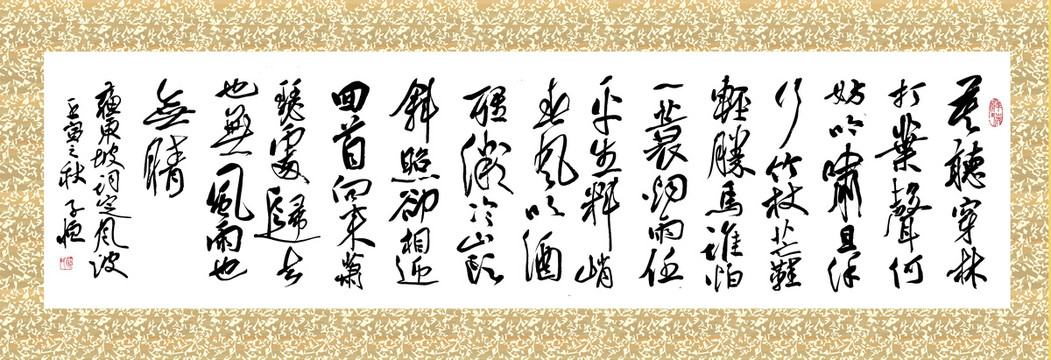 莫聽穿林
打葉聲何
妨吟嘯且徐
行竹杖芒鞋
輕勝馬誰怕
一蓑烟雨任
平生料峭
春風吹酒
醒微冷山頭
斜照卻相迎
回首向來蕭
瑟處歸去
也無風雨也
無晴
蘇東坡詞定風波
壬寅之秋 子恒